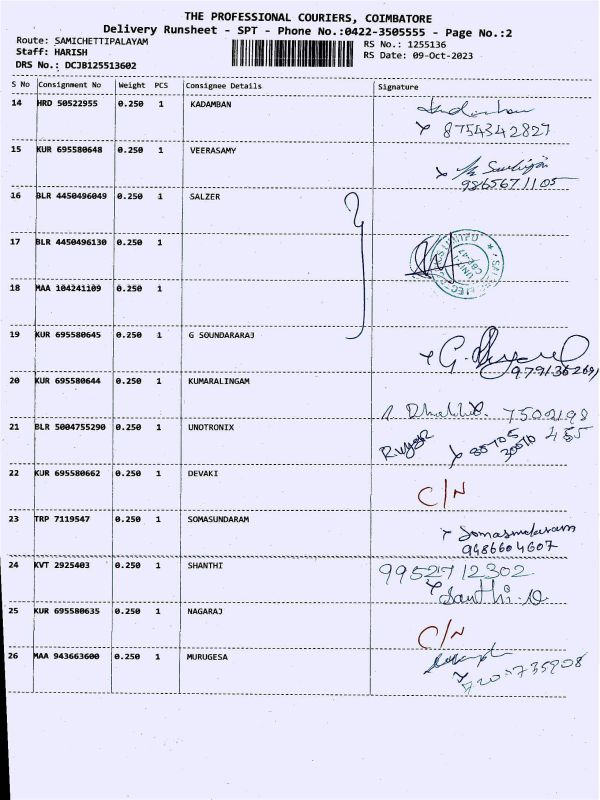 THE PROFESSIONAL COURIERS, COIMBATORE
Delivery Runsheet - SPT - Phone No.:0422-3505555 - Page No.:2
Route: SAMICHETTIPALAYAM
RS No.: 1255136
Staff: HARISH
RS Date: 09-Oct-2023
DRS No.: DCJB125513602
S No Consignment No Weight PCS Consignee Details Signature
14 HRD 50522955 0.250 1 KADAMBAN
8754342827
15 KUR 695580648 0.250 1 VEERASAMY
9865671105
16 BLR 4450496049 0.250 1 SALZER
17 BLR 4450496130 0.250 1
18 MAA 104241109 0.250 1
19 KUR 695580645 0.250 1 G SOUNDARARAJ
G.
20 KUR 695580644 0.250 1 KUMARALINGAM
7502198
455
21 BLR 5004755290 0.250 1 UNOTRONIX
22 KUR 695580662 0.250 1 DEVAKI
C/N
23 TRP 7119547 0.250 1 SOMASUNDARAM
Somasundaram
9486604607
24 KVT 2925403 0.250 1 SHANTHI
9952712302
Santhi.D
25 KUR 695580635 0.250 1 NAGARAJ
C/N
26 MAA 943663600 0.250 1 MURUGESA